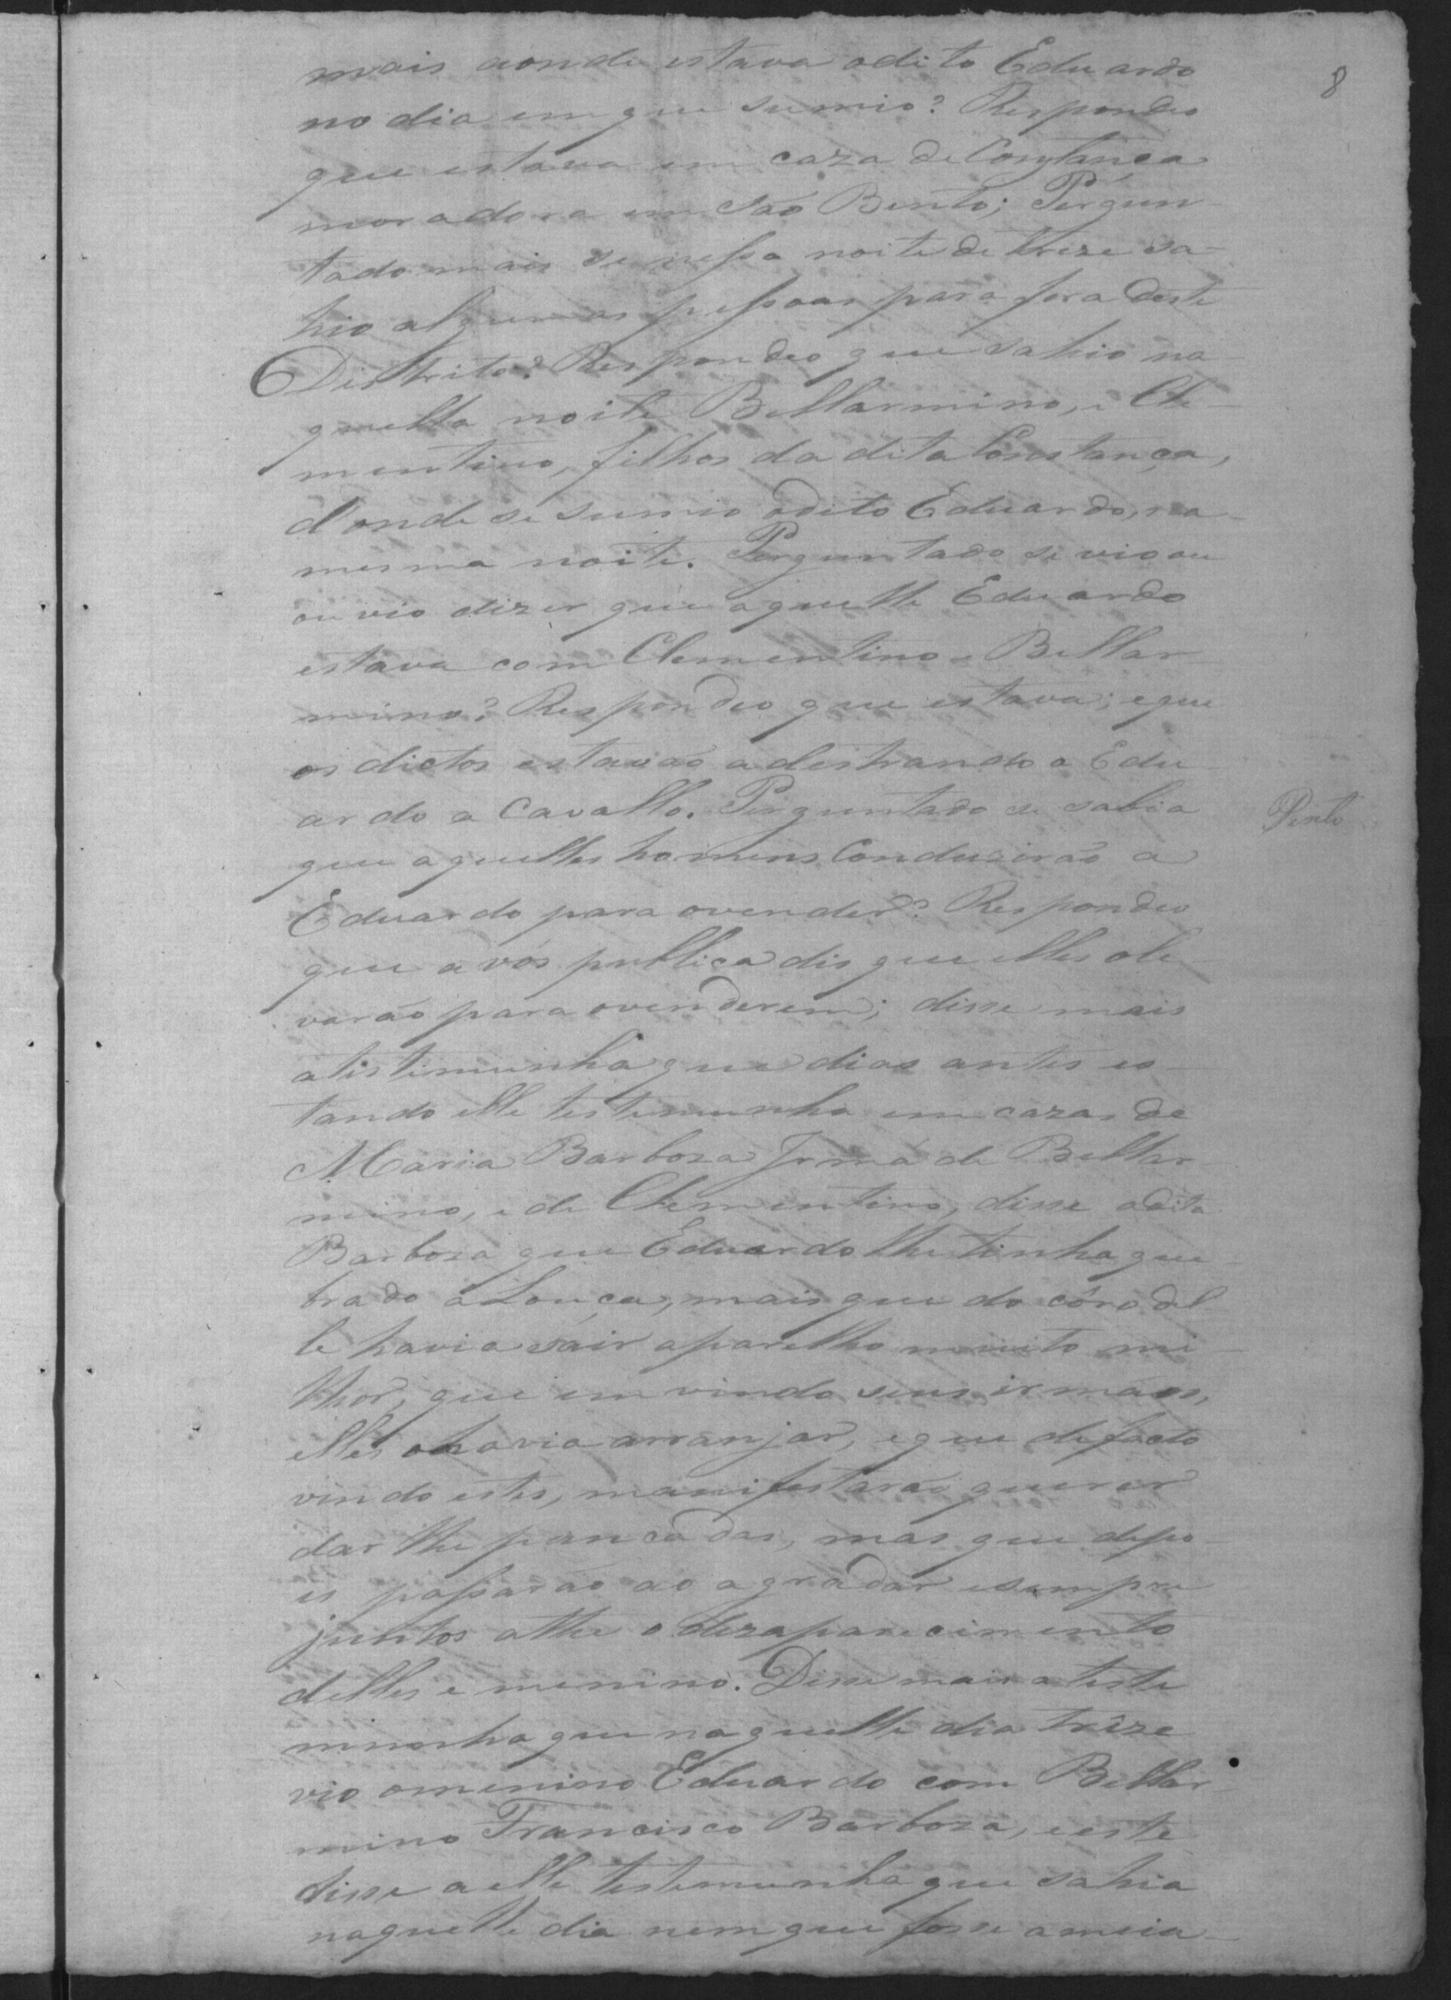 8
mais aonde estava odito Eduardo
no dia em que sumio? Respondeo
que estava em caza de Constança
moradora em São Bento; Pergun-
tado mais se nessa noite de treze sa-
hio algumas pessoas para fora deste
Distrito? Respondeo que sahio na
quella noite Bellarmino, e Cle-
mentino, filhos da dita Constança,
d'onde se sumio odito Eduardo, na
mesma noite. Perguntado se vio ou
ouvio dizer que aquelle Eduardo
estava com Clementino e Bellar
mino? Respondeo que estava; eque
os dictos estavão adestrando a Edu
ardo a Cavallo. Perguntado se sabia
que aquelles homens Conduzirão a
Pinto
Eduardo para ovender? Respondeo
que a vós publica dis que elles ole
varão para ovenderem; disse mais
atestimunha que dias antes es-
tando elle testemunha em cazas de
Maria Barboza Irmã de Bellar
mino, e de Clementino, disse adita
Barboza que Eduardo lhe tinha que-
brado a Louça, mais que do côro del
le havia sair aparelho muito mi
lhor, que em vindo seus irmãos,
elles o havia arranjar, eque defacto
vindo estes, manifestarão querer
dar lhe pancadas, mas que depo-
is passarão ao agradar esempre
juntos athe o dezaparecimento
delles e menino. Disse mais a teste
minha que naquelle dia trêze
vio omenino Eduardo com Bellar
mino Francisco Barboza, e este
disse a elle testemunha que sahia
naquelle dia nem que fosse a meia-